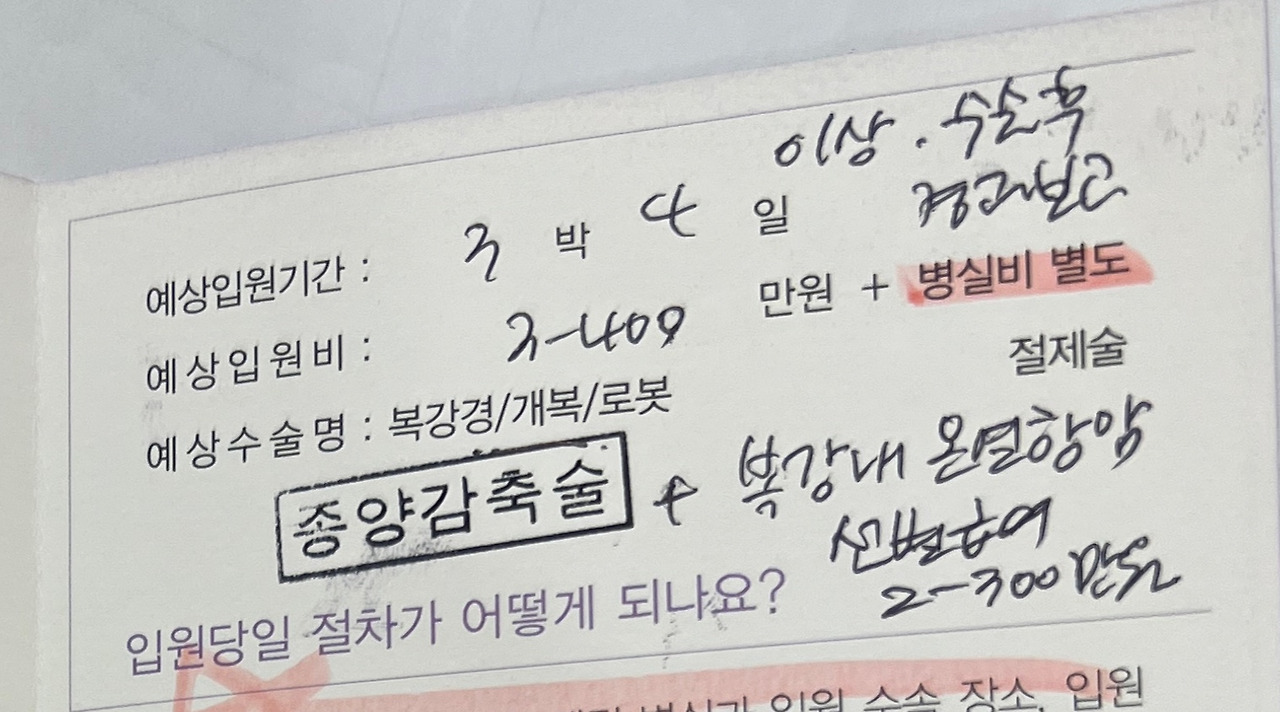 이상. 수술후
예상입원기간 : 3 박 4 일 경과보고
예상입원비 : 3-400 만원 + 병실비 별도
예상수술명 : 복강경/개복/로봇 절제술
종양감축술 + 복강내 온열항암
선별급여
2-300만원
입원당일 절차가 어떻게 되나요?
입원 수속 장소, 입원